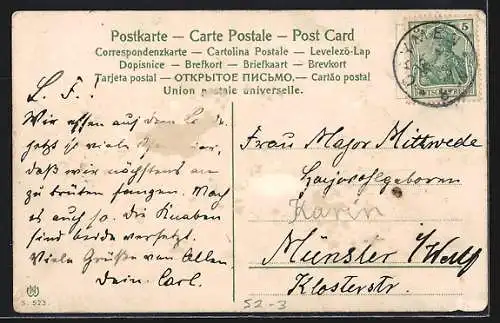 Postkarte — Carte Postale — Post Card
Correspondenzkarte — Cartolina Postale — Levelező-Lap
Dopisnice — Brefkort — Briefkaart — Brevkort
Tarjeta postal — ОТКРЫТОЕ ПИСЬМО. — Cartão postal
Union postale universelle.
5
L. F.!
Wir essen auf dem
jetzt so viele
daß wir nächstens an
zu brüten fangen. Mach
es auch so. Die Knaben
sind beide versetzt.
Viele Grüße von Allen
Dein Carl.
Frau Major Mittwede
Hochwohlgeboren
Karin
Münster i/Westf
Klosterstr.
S. 523.
52-3